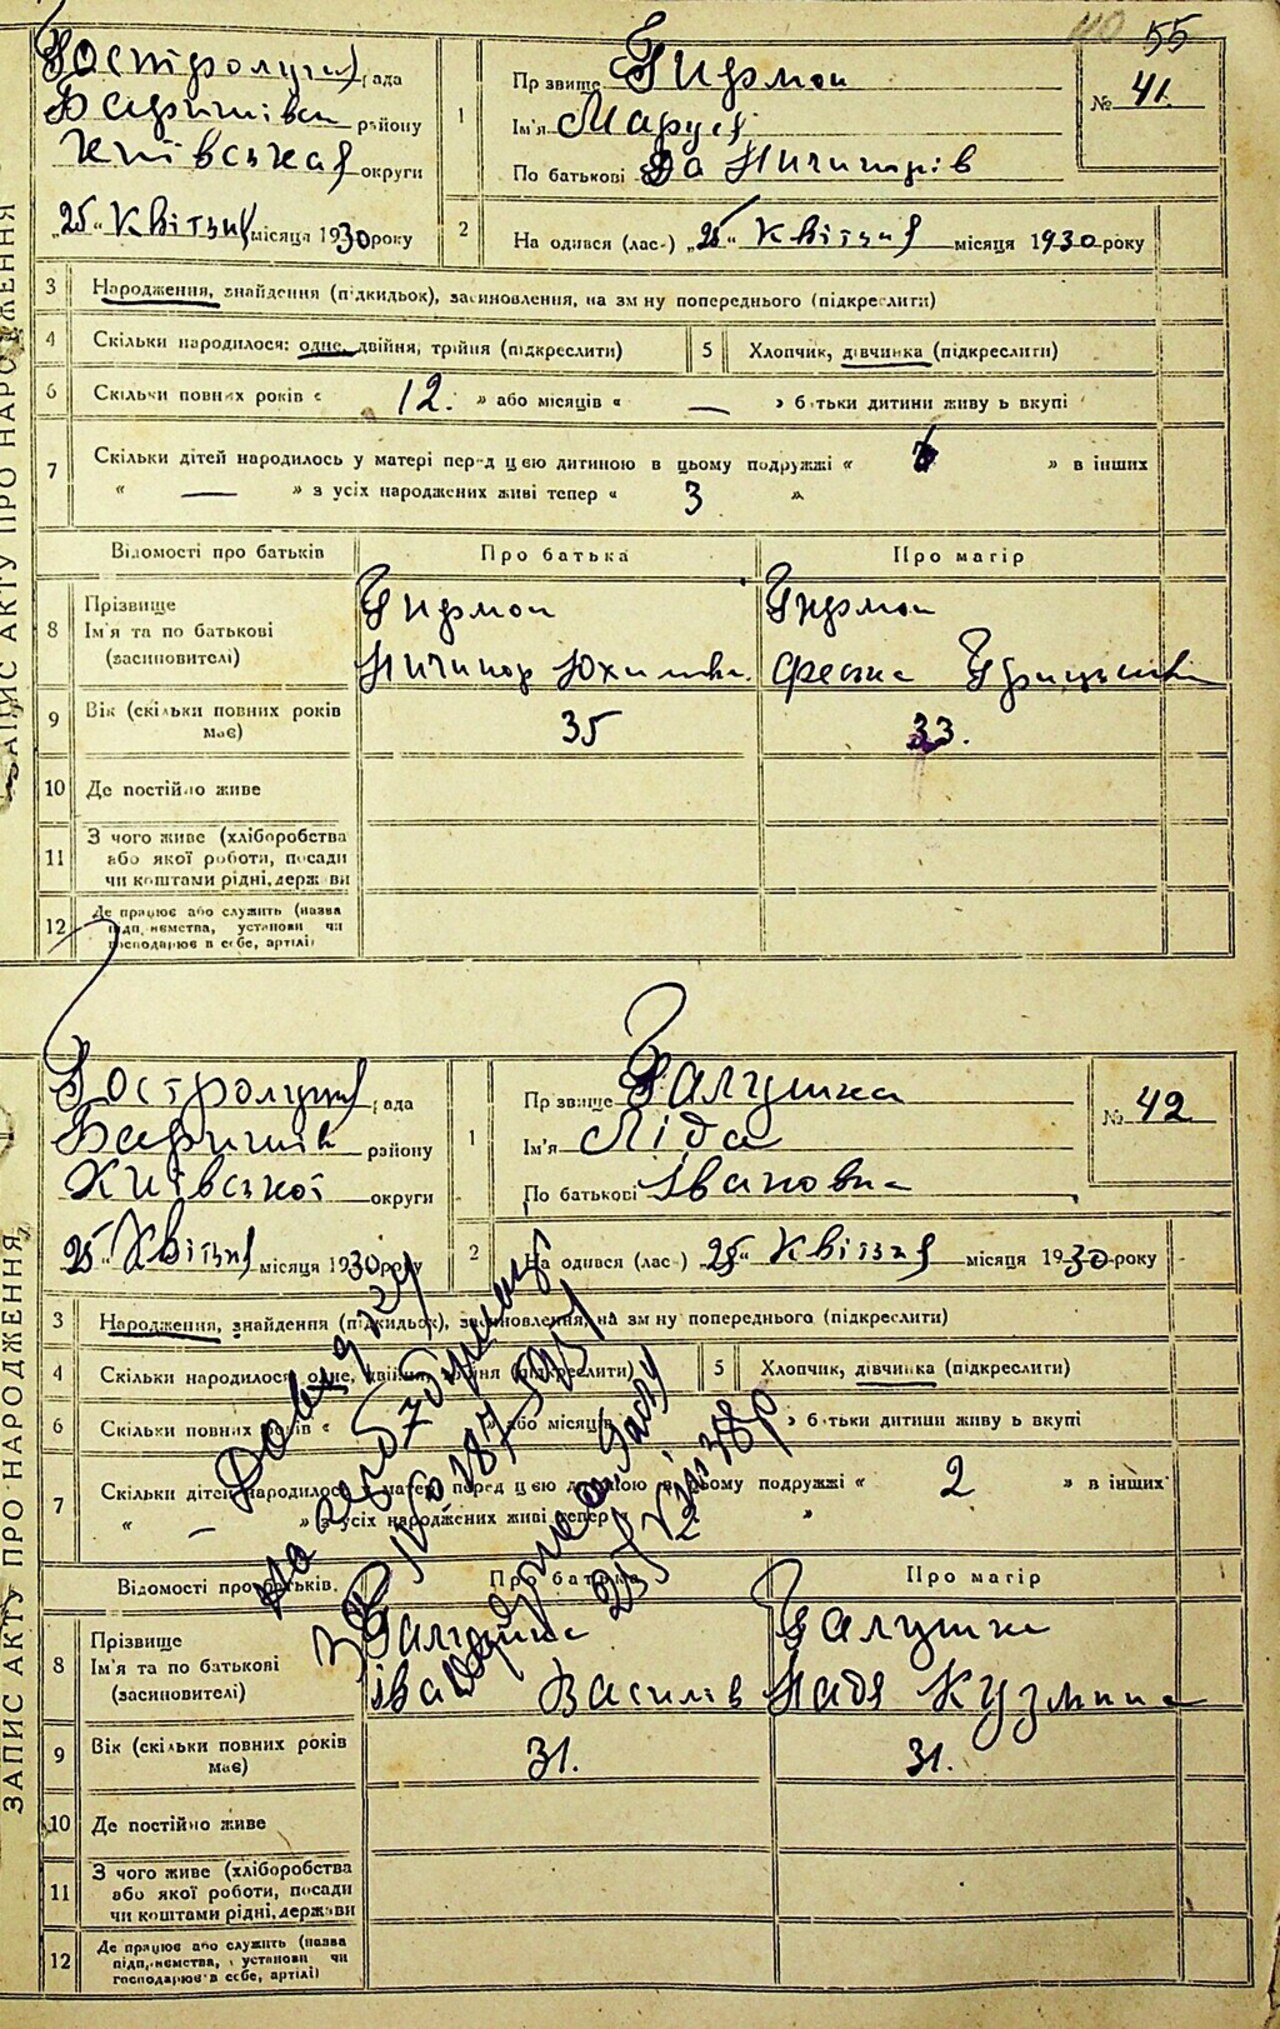 55
ЗАПИС АКТУ ПРО НАРОДЖЕННЯ
Гостролуцька рада
Баришівськ району
Київська округи
"25" Квітня місяця 1930 року
1
Прізвище Гирман
Ім'я Маруся
По батькові Ничипорів
№ 41.
2
На одився (лас-) "25" Квітня місяця 1930 року
3 Народження, знайдення (підкидьок), засиновлення, на зм ну попереднього (підкреслити)
4 Скільки народилося: одне, двійня, трійня (підкреслити)
5 Хлопчик, дівчинка (підкреслити)
6 Скільки повних років « 12. » або місяців « — » б тьки дитини живу ь вкупі
7 Скільки дітей народилось у матері перед цею дитиною в цьому подружжі « » в інших
« — » з усіх народжених живі тепер « 3 »
Відомості про батьків Про батька Про матір
8 Прізвище
Ім'я та по батькові
(засиновителі)
Гирман
Ничипор Юхимов.
Гирман
Феська
9 Вік (скільки повних років
має)
35
33.
10 Де постійно живе
11 З чого живе (хліборобства
або якої роботи, посади
чи коштами рідні, держ ви
12 Де працює або служить (назва
підп. ємства, установи чи
господарює в себе, артілі)
ЗАПИС АКТУ ПРО НАРОДЖЕННЯ
Гостролуцька рада
Баришів району
Київської округи
"25" Квітня місяця 1930 року
1
Прізвище Галушка
Ім'я Ліда
По батькові Івановна
№ 42
2
На одився (лас-) "25" Квітня місяця 1930 року
3 Народження, знайдення (підкидьок), засиновлення, на зм ну попереднього (підкреслити)
4 Скільки народилося одне, двійня, трійня (підкреслити)
5 Хлопчик, дівчинка (підкреслити)
6 Скільки повних років « » або місяців » б тьки дитини живу ь вкупі
7 Скільки дітей народилось у матері перед цею дитиною в цьому подружжі « 2 » в інших
« — » з усіх народжених живі тепер « »
Відомості про батьків. Про батька Про матір
8 Прізвище
Ім'я та по батькові
(засиновителі)
Галушка
Іван Василів
Галушка
Надя Кузмина
9 Вік (скільки повних років
має)
31.
31.
10 Де постійно живе
11 З чого живе (хліборобства
або якої роботи, посади
чи коштами рідні, держави
12 Де працює або служить (назва
підп. ємства, установи чи
господарює в себе, артілі)